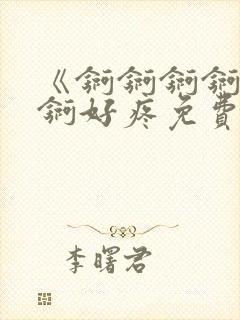 《锕锕锕锕
锕好疼免費
李曙君